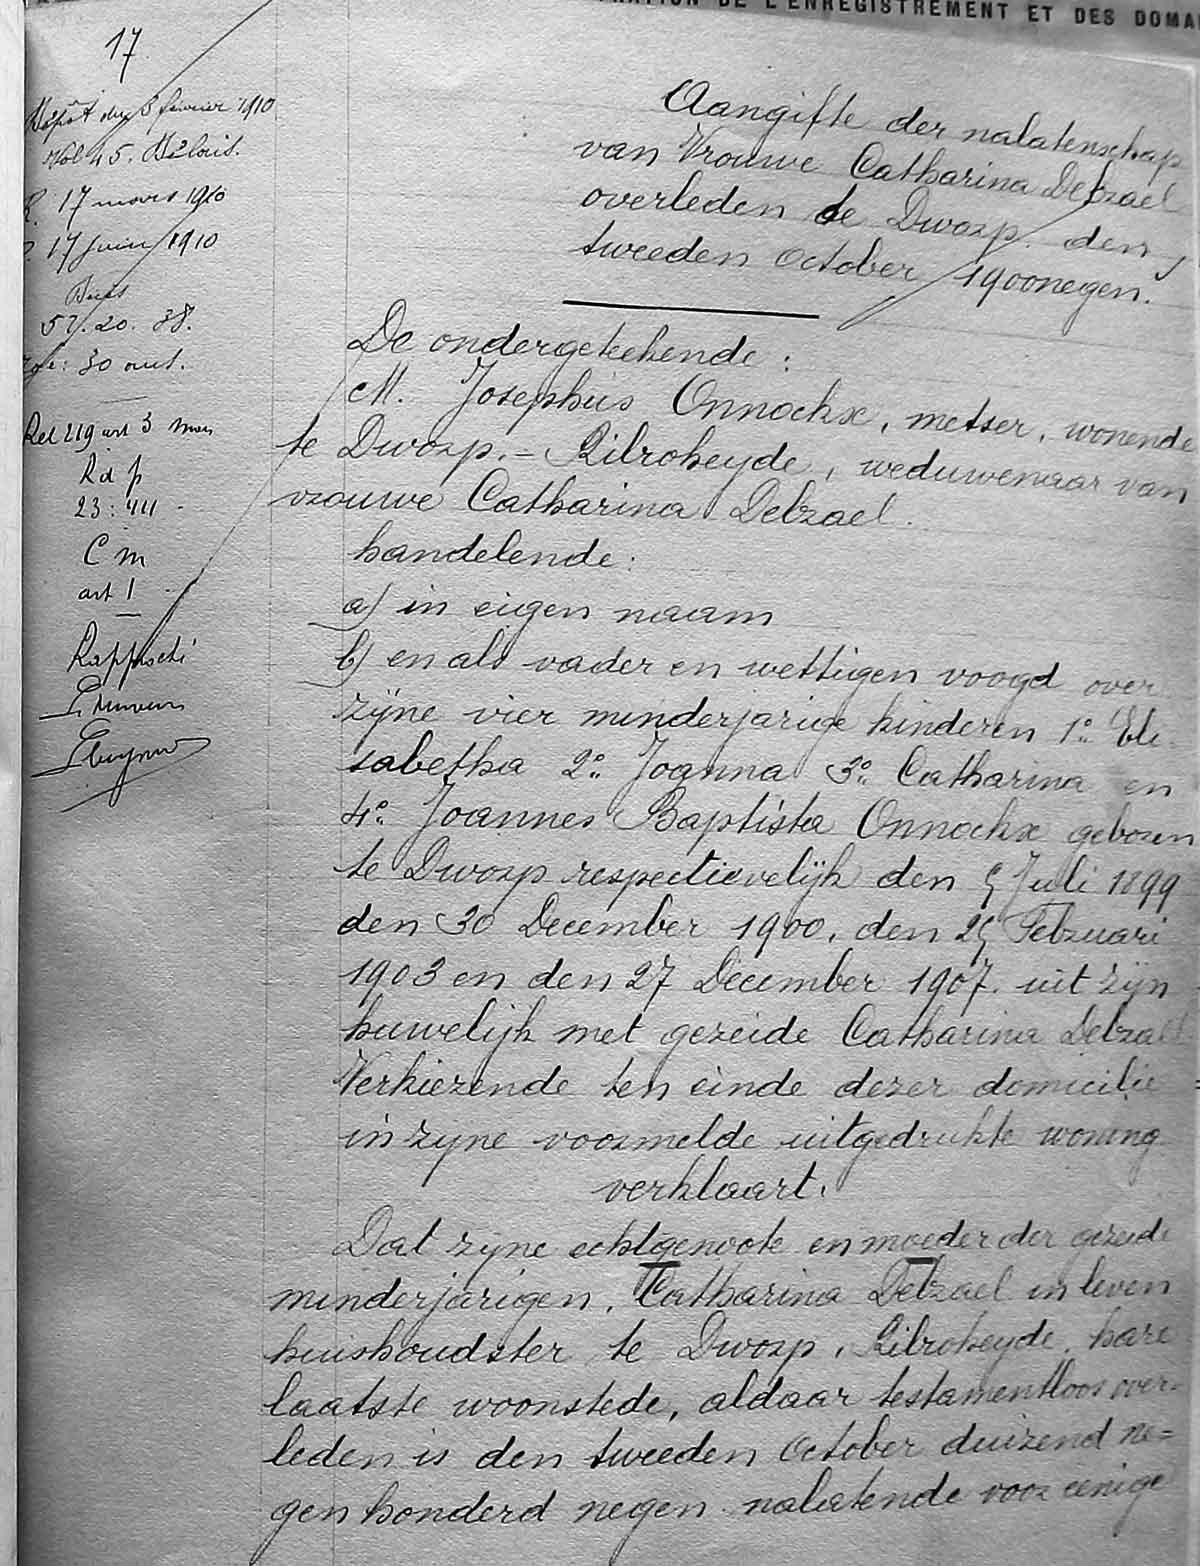 DE L'ENREGISTREMENT ET DES DOMA
17
Dépôt du 3 février 1910
Vol 45.
17 mars 1910
17 Juin 1910
57. 20. 38.
30 aut.
219 art 3
Rd p
23:44
C m
art 1
Aangifte der nalatenschap
van Vrouwe Catharina Debrael
overleden te Dworp den
tweeden october 1900negen.
De ondergeteekende :
M. Josephus Onnockx, metser, wonende
te Dworp. – Kilroheyde, weduwenaar van
vrouwe Catharina Debrael.
handelende :
a) in eigen naam
b) en als vader en wettigen voogd over
zijne vier minderjarige kinderen 1º Eli-
sabetha 2º Joanna 3º Catharina en
4º Joannes Baptista Onnockx geboren
te Dworp respectievelijk den 5 Juli 1899
den 30 December 1900, den 25 Februari
1903 en den 27 December 1907. uit zijn
huwelijk met gezeide Catharina Debrael
Verkiezende ten einde dezer domicilie
in zyne voormelde uitgedrukte woning
verklaart.
Dat zyne echtgenoote en moeder der gezeide
minderjarigen, Catharina Debrael in leven
huishoudster te Dworp, Kilroheyde, hare
laatste woonstede, aldaar testamentloos over-
leden is den tweeden october duizend ne=
gen honderd negen nalatende voor eenige